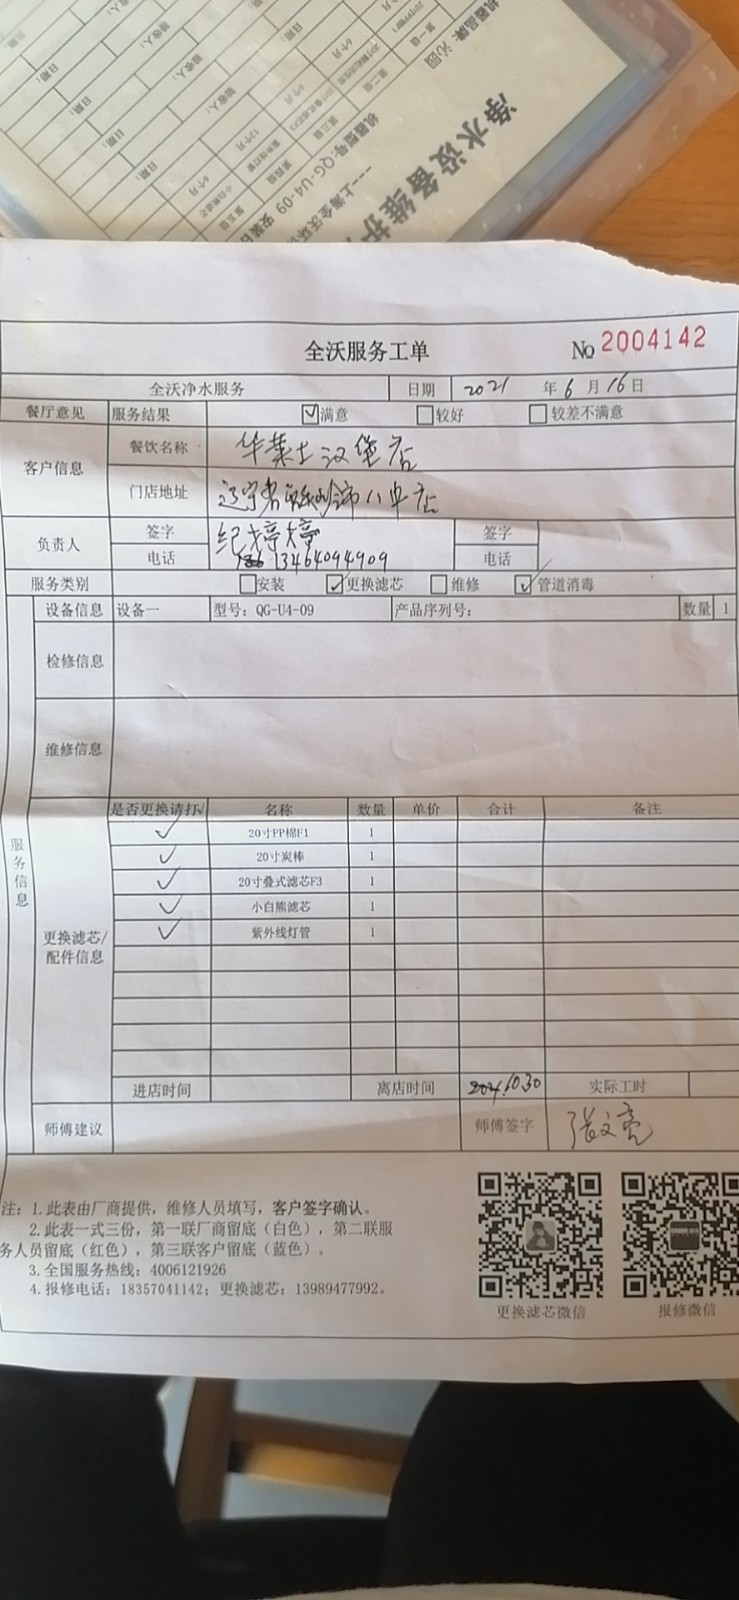 净水设备维护
机器品牌:沁园
机器型号:QG-U4-09
全沃服务工单 No 2004142
全沃净水服务 日期 2021 年 6 月 16 日
餐厅意见 服务结果 ☑满意 □较好 □较差不满意
客户信息 餐饮名称 华莱士汉堡店
门店地址 辽宁省
负责人 签字 纪婷婷 签字
电话 13464094909 电话
服务类别 □安装 ☑更换滤芯 □维修 ☑管道消毒
设备信息 设备一 型号：QG-U4-09 产品序列号： 数量 1
检修信息
维修信息
服务信息
是否更换请打√ 名称 数量 单价 合计 备注
✓ 20寸PP棉F1 1
✓ 20寸炭棒 1
✓ 20寸叠式滤芯F3 1
✓ 小白熊滤芯 1
✓ 紫外线灯管 1
更换滤芯/
配件信息
进店时间 离店时间 1030 实际工时
师傅建议 师傅签字 张文亮
注：1.此表由厂商提供，维修人员填写，客户签字确认。
2.此表一式三份，第一联厂商留底（白色），第二联服
务人员留底（红色），第三联客户留底（蓝色）。
3.全国服务热线：4006121926
4.报修电话：18357041142；更换滤芯：13989477992。
更换滤芯微信 报修微信